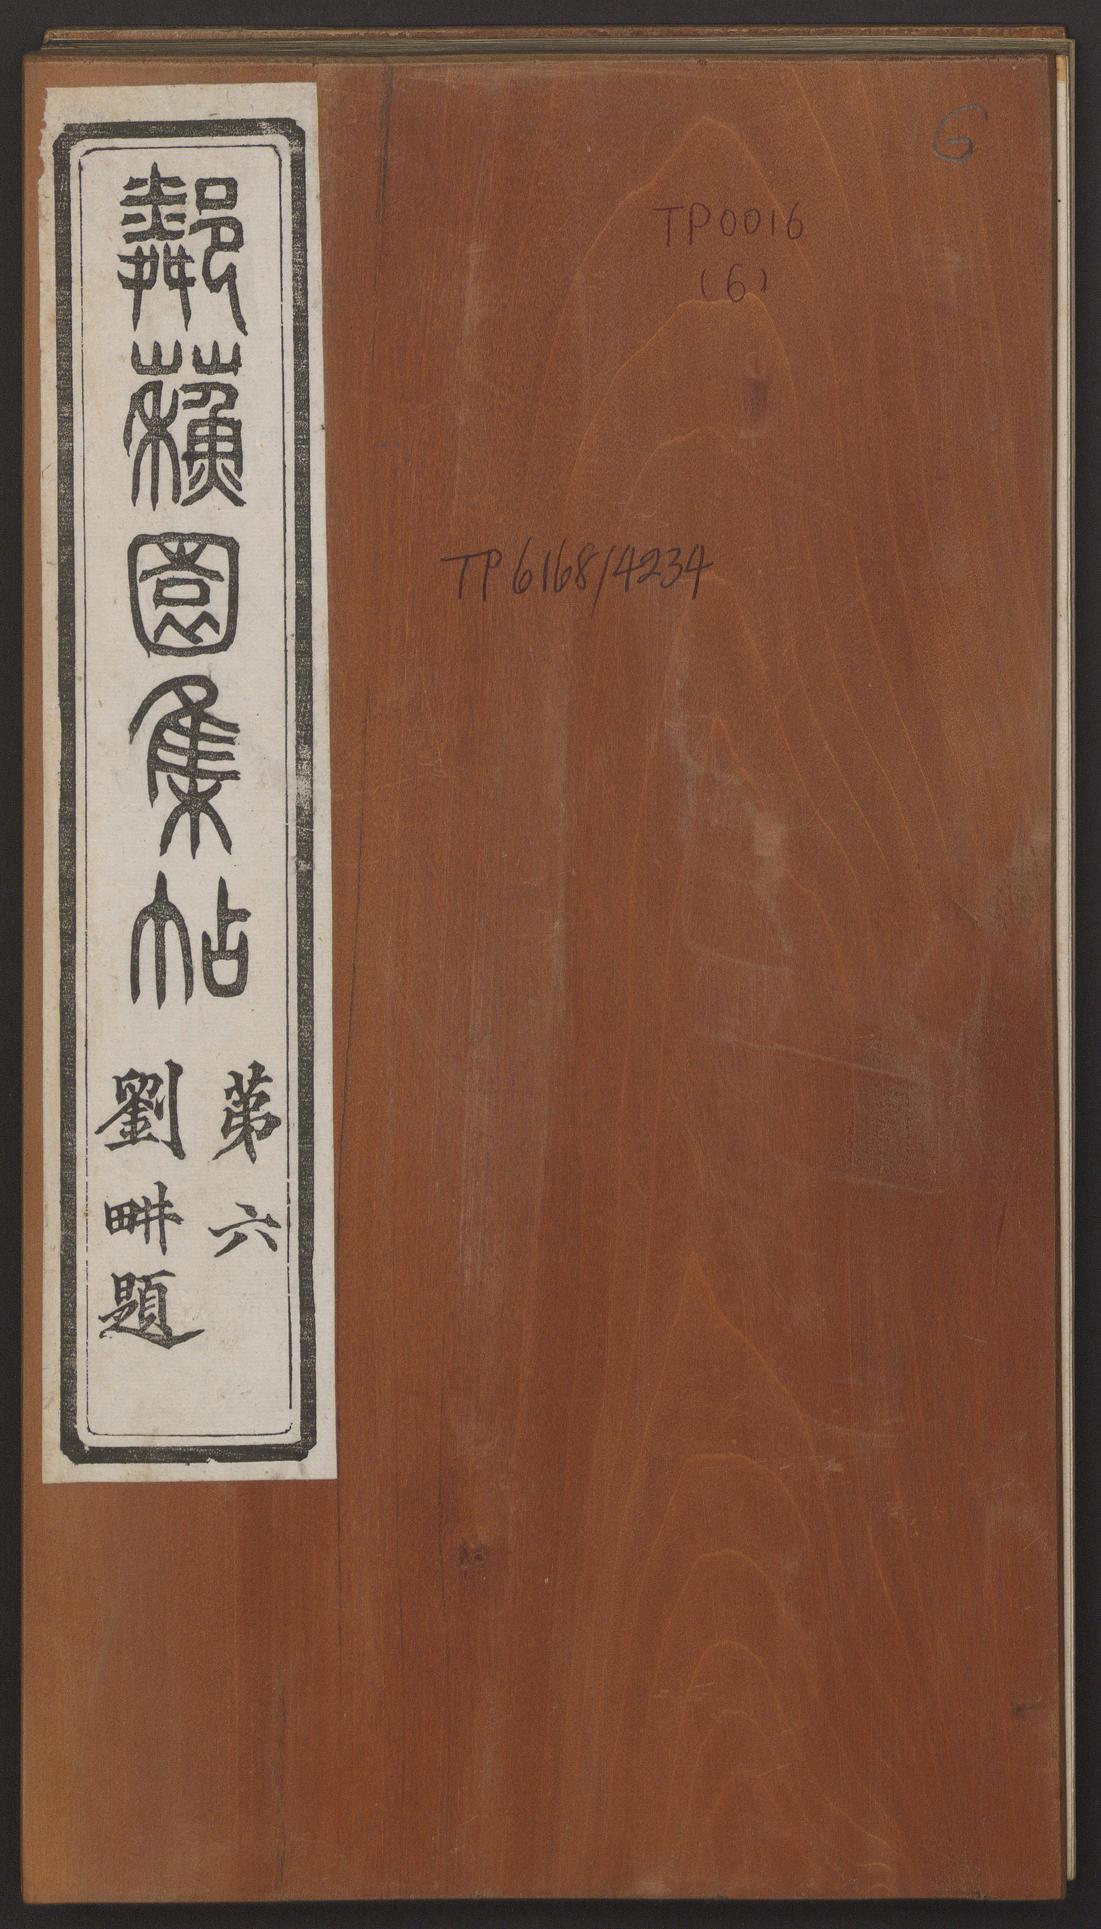 鄰蘇園集帖
第六
劉畊題
6
TP0016
(6)
TP6168/4234